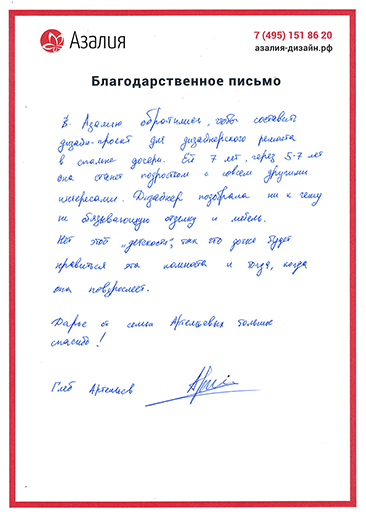 Азалия
7 (495) 151 86 20
азалия-дизайн.рф
Благодарственное письмо
В Азалию обратились, чтобы составить
дизайн-проект для дизайнерского ремонта
в спальне дочери. Ей 7 лет, через 5-7 лет
она станет подростком с совсем другими
интересами. Дизайнер подобрала ни к чему
не обязывающую отделку и мебель.
Нет этой "детскости", так что дочке будет
нравиться эта комната и тогда, когда
она повзрослеет.
Дарье от семьи большое
спасибо!
Глеб